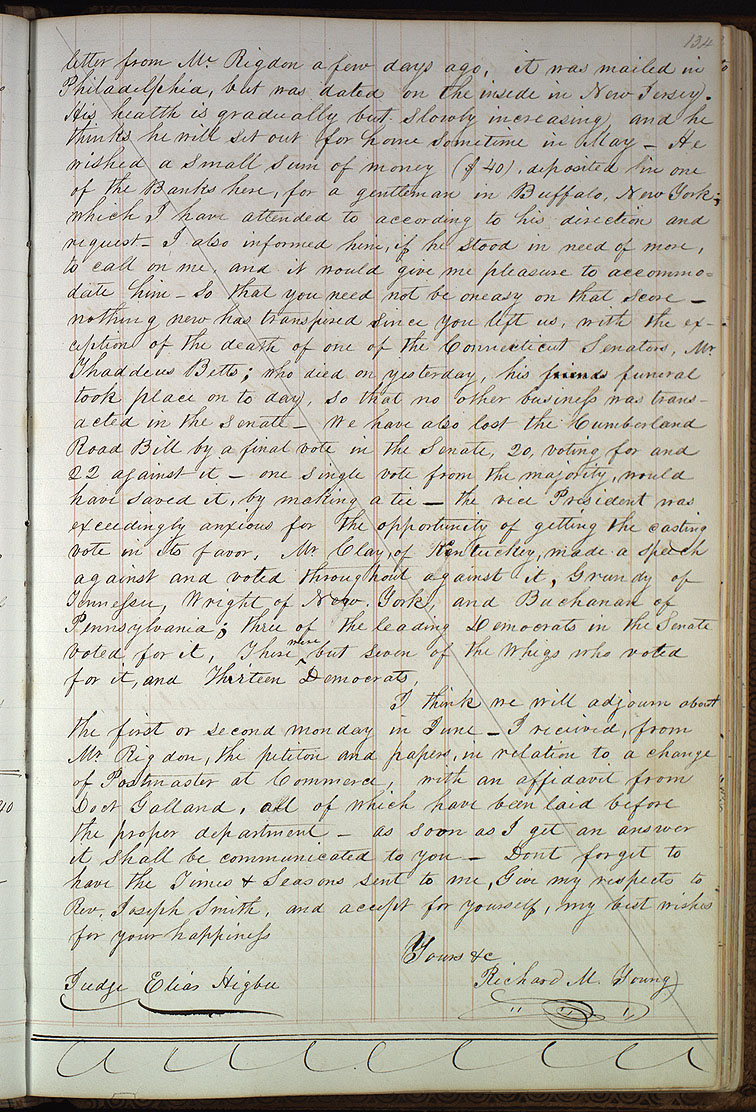 134
letter from Mr Rigdon a few days ago, it was mailed in
Philadelphia, but was dated on the insede in New Jersey.
His health is gradually but slowly increasing, and he
thinks he will set out for home sometime in May – He
wished a small sum of money ($40), deposited in one
of the Banks here, for a gentleman in Buffalo, New York;
which I have attended to according to his direction and
request – I also informed him, if he stood in need of more,
to call on me, and it would give me pleasure to accommo-
date him – So that you need not be oneasy on that score –
nothing new has transpired since you left us, with the ex-
ception of the death of one of the Connecticut Senators, Mr
Thaddeus Betts; who died on yesterday, his friends funeral
took place on to day, so that no other business was trans-
acted in the Senate – We have also lost the Cumberland
Road Bill by a final vote in the Senate, 20, voting for and
22 against it – one single vote from the majority, would
have saved it, by making a tie – the vice President was
exceedingly anxious for the opportunity of getting the casting
vote in its favor, Mr Clay, of Kentucky, made a speech
against and voted throughout against it, Grundy of
Tennessee, Wright, of New York, and Buchanan of
Pennsylvania; three of the leading Democrats in the Senate
voted for it, There were but seven of the Whigs who voted
for it, and Thirteen Democrats,
I think we will adjourn about
the first or second monday in June – I received, from
Mr Rigdon, the petition and papers, in relation to a change
of Postmaster at Commerce, with an affidavit from
Doct Galland, all of which have been laid before
the proper department – as soon as I get an answer
it shall be communicated to you – Dont forget to
have the Times & Seasons sent to me, Give my respects to
Rev. Joseph Smith, and accept for yourself, my best wishes
for your happiness
Yours &c
Judge Elias Higbee Richard M. Young